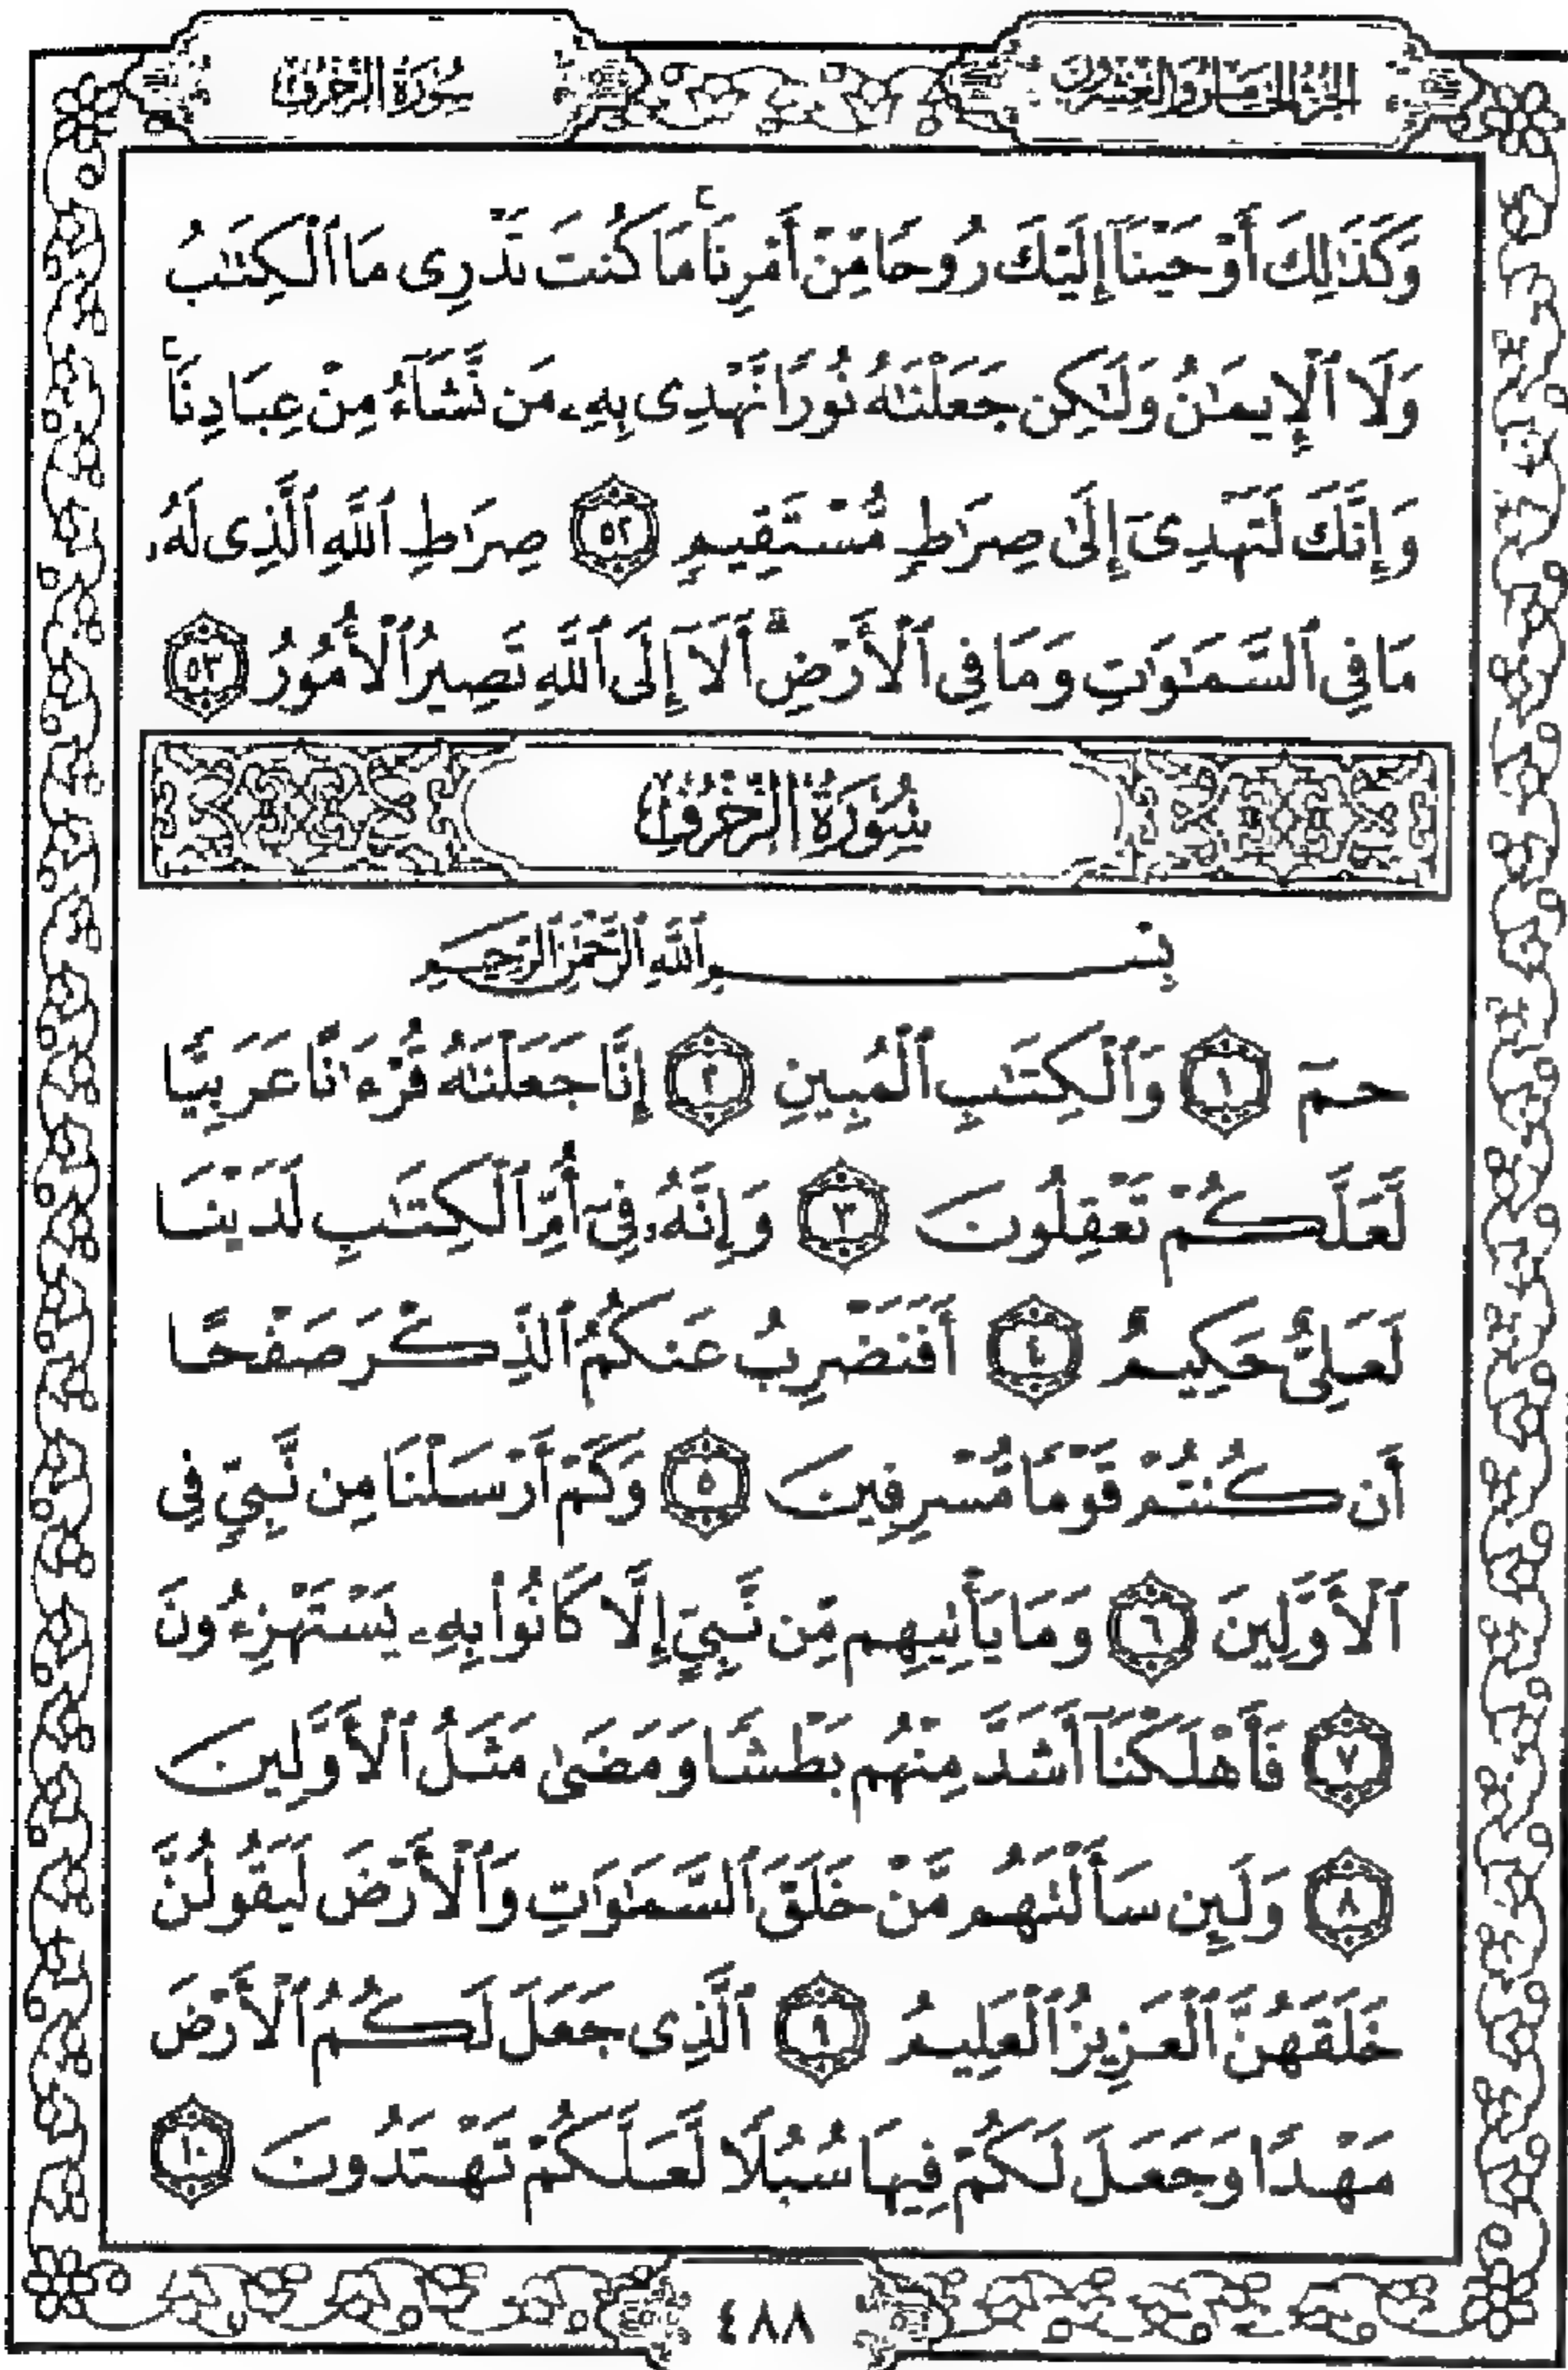 الجزء الخامس والعشرون
سورة الزخرف
وَكَذَٰلِكَ أَوْحَيْنَآ إِلَيْكَ رُوحًا مِّنْ أَمْرِنَا ۚ مَا كُنتَ تَدْرِى مَا ٱلْكِتَٰبُ
وَلَا ٱلْإِيمَٰنُ وَلَٰكِن جَعَلْنَٰهُ نُورًا نَّهْدِى بِهِۦ مَن نَّشَآءُ مِنْ عِبَادِنَا ۚ
وَإِنَّكَ لَتَهْدِىٓ إِلَىٰ صِرَٰطٍ مُّسْتَقِيمٍ ٥٢ صِرَٰطِ ٱللَّهِ ٱلَّذِى لَهُۥ
مَا فِى ٱلسَّمَٰوَٰتِ وَمَا فِى ٱلْأَرْضِ ۗ أَلَآ إِلَى ٱللَّهِ تَصِيرُ ٱلْأُمُورُ ٥٣
سُورَةُ الزُّخْرُفِ
بِسْمِ ٱللَّهِ ٱلرَّحْمَٰنِ ٱلرَّحِيمِ
حمٓ ١ وَٱلْكِتَٰبِ ٱلْمُبِينِ ٢ إِنَّا جَعَلْنَٰهُ قُرْءَٰنًا عَرَبِيًّا
لَّعَلَّكُمْ تَعْقِلُونَ ٣ وَإِنَّهُۥ فِىٓ أُمِّ ٱلْكِتَٰبِ لَدَيْنَا
لَعَلِىٌّ حَكِيمٌ ٤ أَفَنَضْرِبُ عَنكُمُ ٱلذِّكْرَ صَفْحًا
أَن كُنتُمْ قَوْمًا مُّسْرِفِينَ ٥ وَكَمْ أَرْسَلْنَا مِن نَّبِىٍّ فِى
ٱلْأَوَّلِينَ ٦ وَمَا يَأْتِيهِم مِّن نَّبِىٍّ إِلَّا كَانُوا۟ بِهِۦ يَسْتَهْزِءُونَ
٧ فَأَهْلَكْنَآ أَشَدَّ مِنْهُم بَطْشًا وَمَضَىٰ مَثَلُ ٱلْأَوَّلِينَ
٨ وَلَئِن سَأَلْتَهُم مَّنْ خَلَقَ ٱلسَّمَٰوَٰتِ وَٱلْأَرْضَ لَيَقُولُنَّ
خَلَقَهُنَّ ٱلْعَزِيزُ ٱلْعَلِيمُ ٩ ٱلَّذِى جَعَلَ لَكُمُ ٱلْأَرْضَ
مَهْدًا وَجَعَلَ لَكُمْ فِيهَا سُبُلًا لَّعَلَّكُمْ تَهْتَدُونَ ١٠
٤٨٨